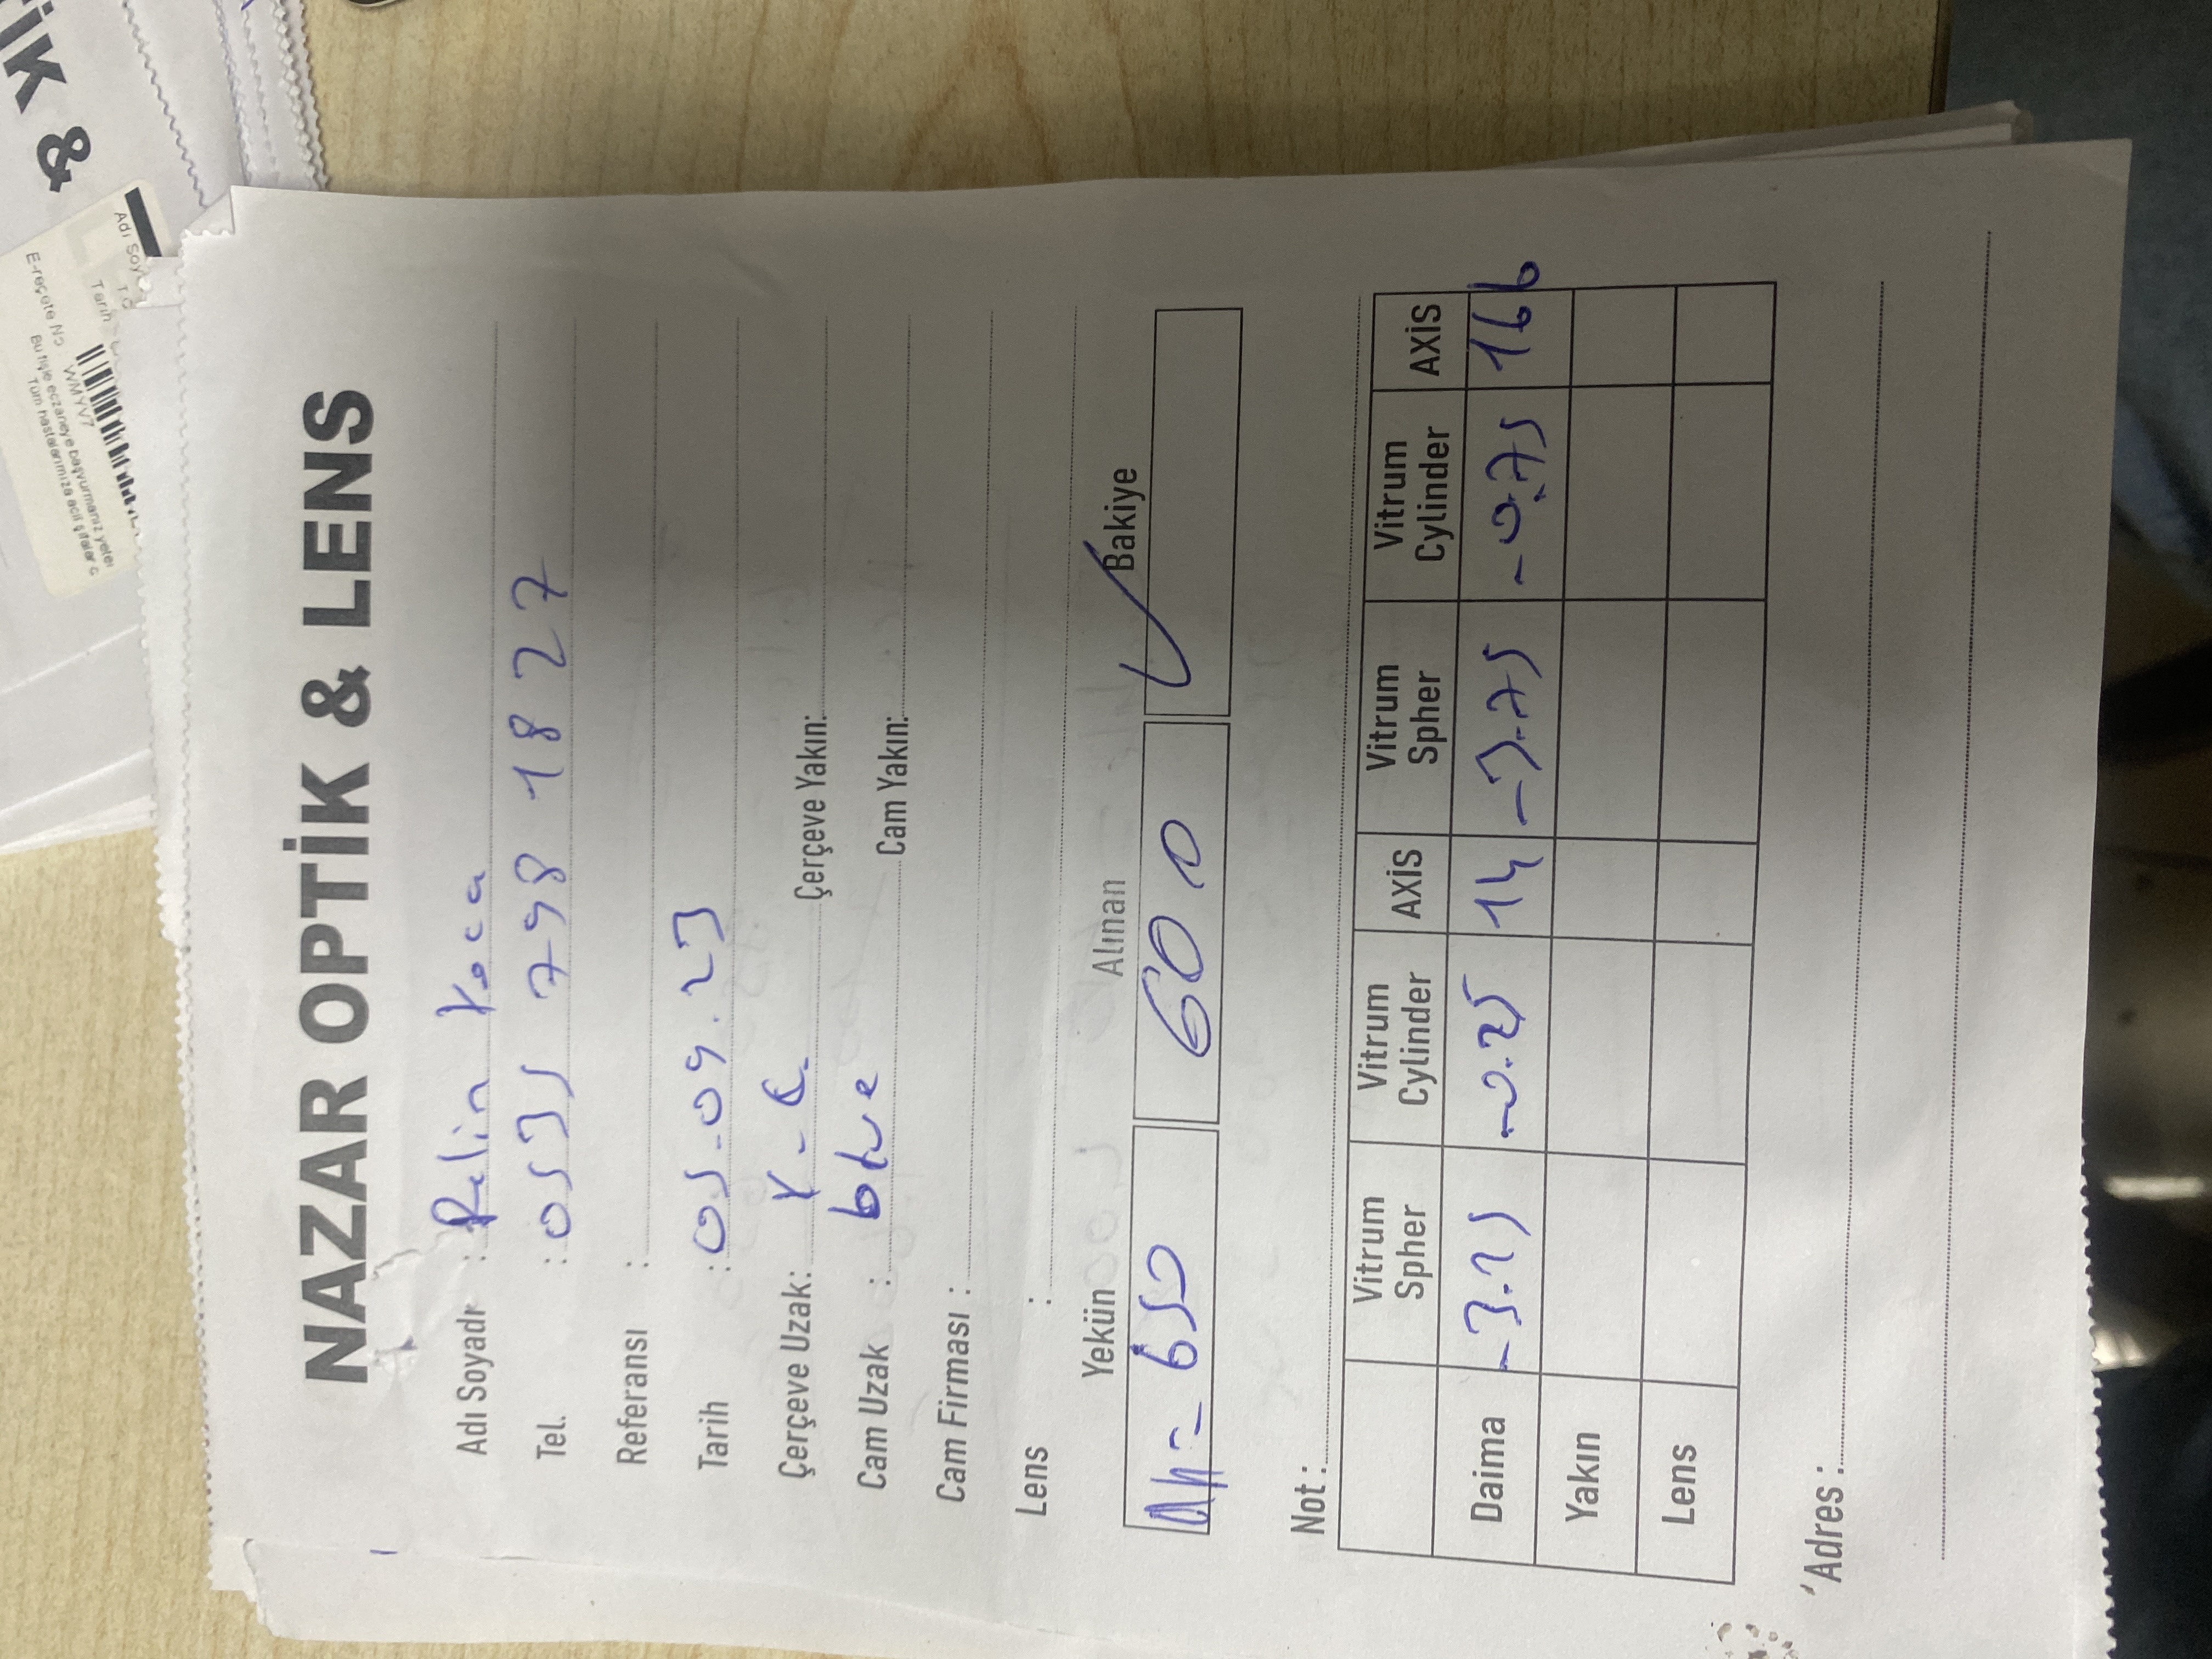 İK &
Adı Soy
Tarih
E-reçete No WMYV7
Bu fişle eczaneye başvurmanız yeter
Tüm hastalarımıza acil şifalar
NAZAR OPTİK & LENS
Adı Soyadı : Pelin Koca
Tel. : 0535 798 1827
Referansı :
Tarih : 05.09.23
Çerçeve Uzak: Çerçeve Yakın:
Cam Uzak : blue Cam Yakın:
Cam Firması :
Lens :
Yekün Alınan Bakiye
650 600
Not :
Vitrum Spher Vitrum Cylinder AXİS Vitrum Spher Vitrum Cylinder AXİS
Daima -3.25 -0.25 14 -3.75 -0.75 166
Yakın
Lens
Adres :